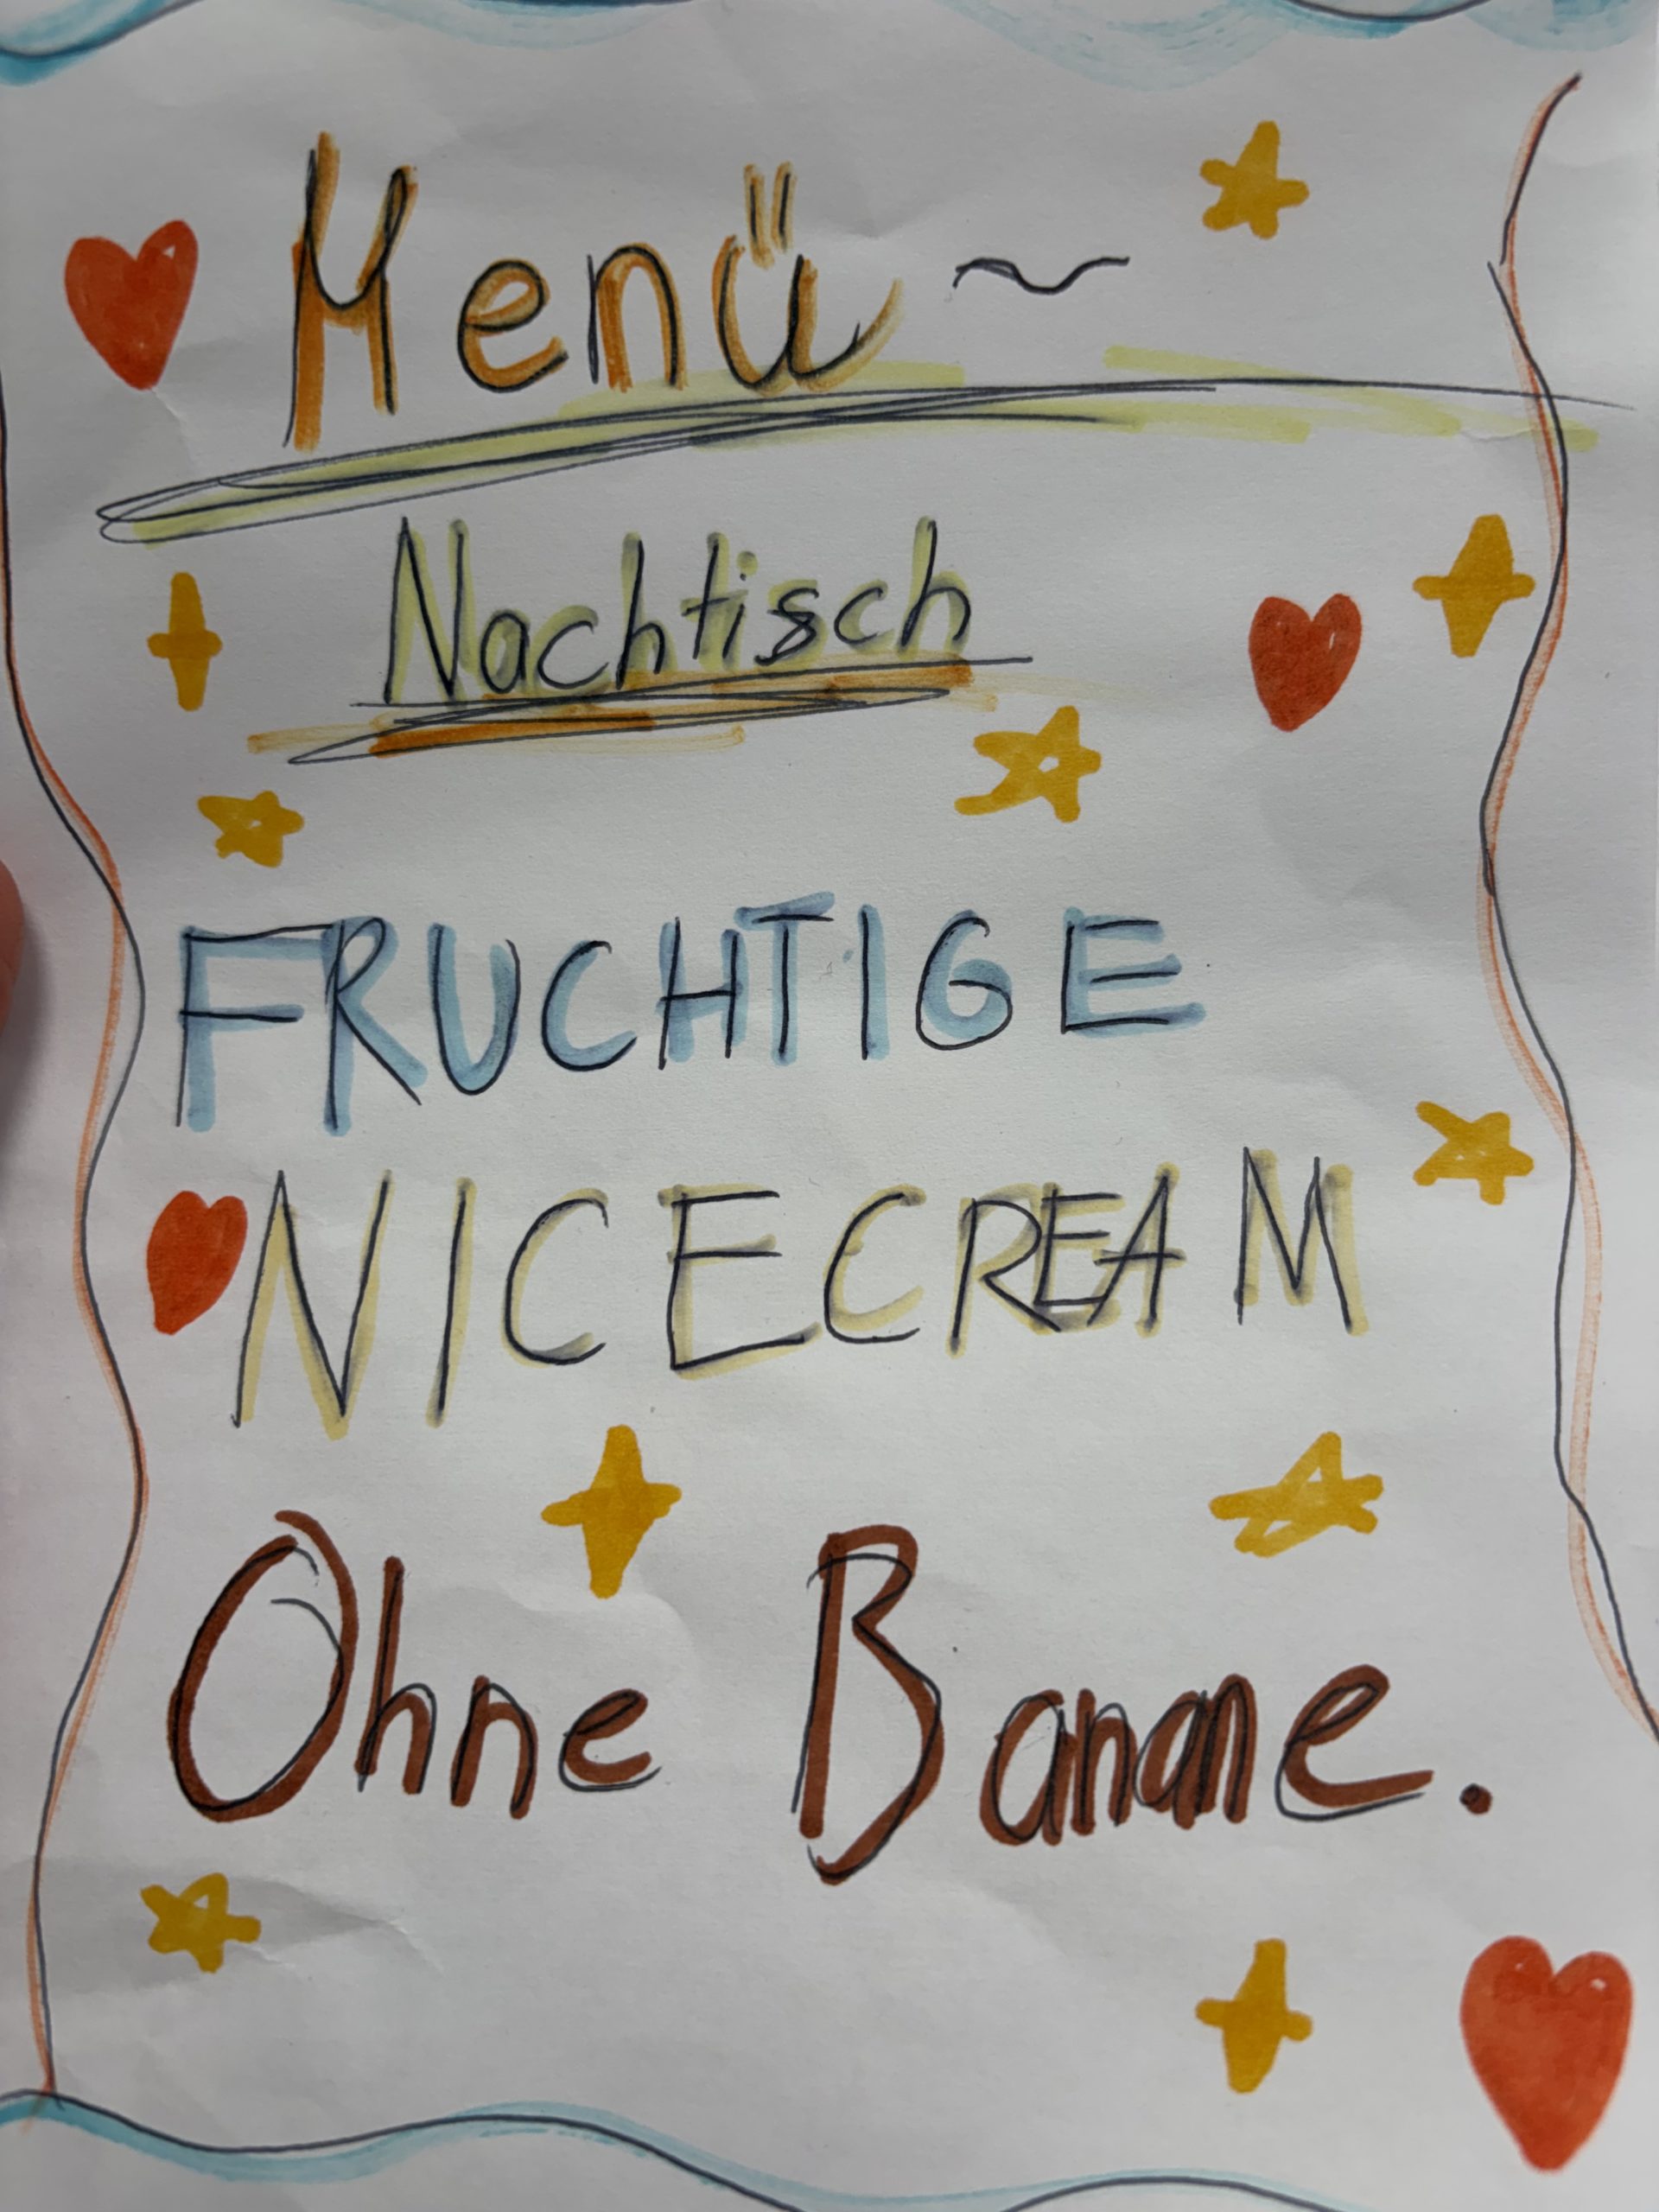 Menü ~
Nachtisch
FRUCHTIGE
NICECREAM
Ohne Banane.